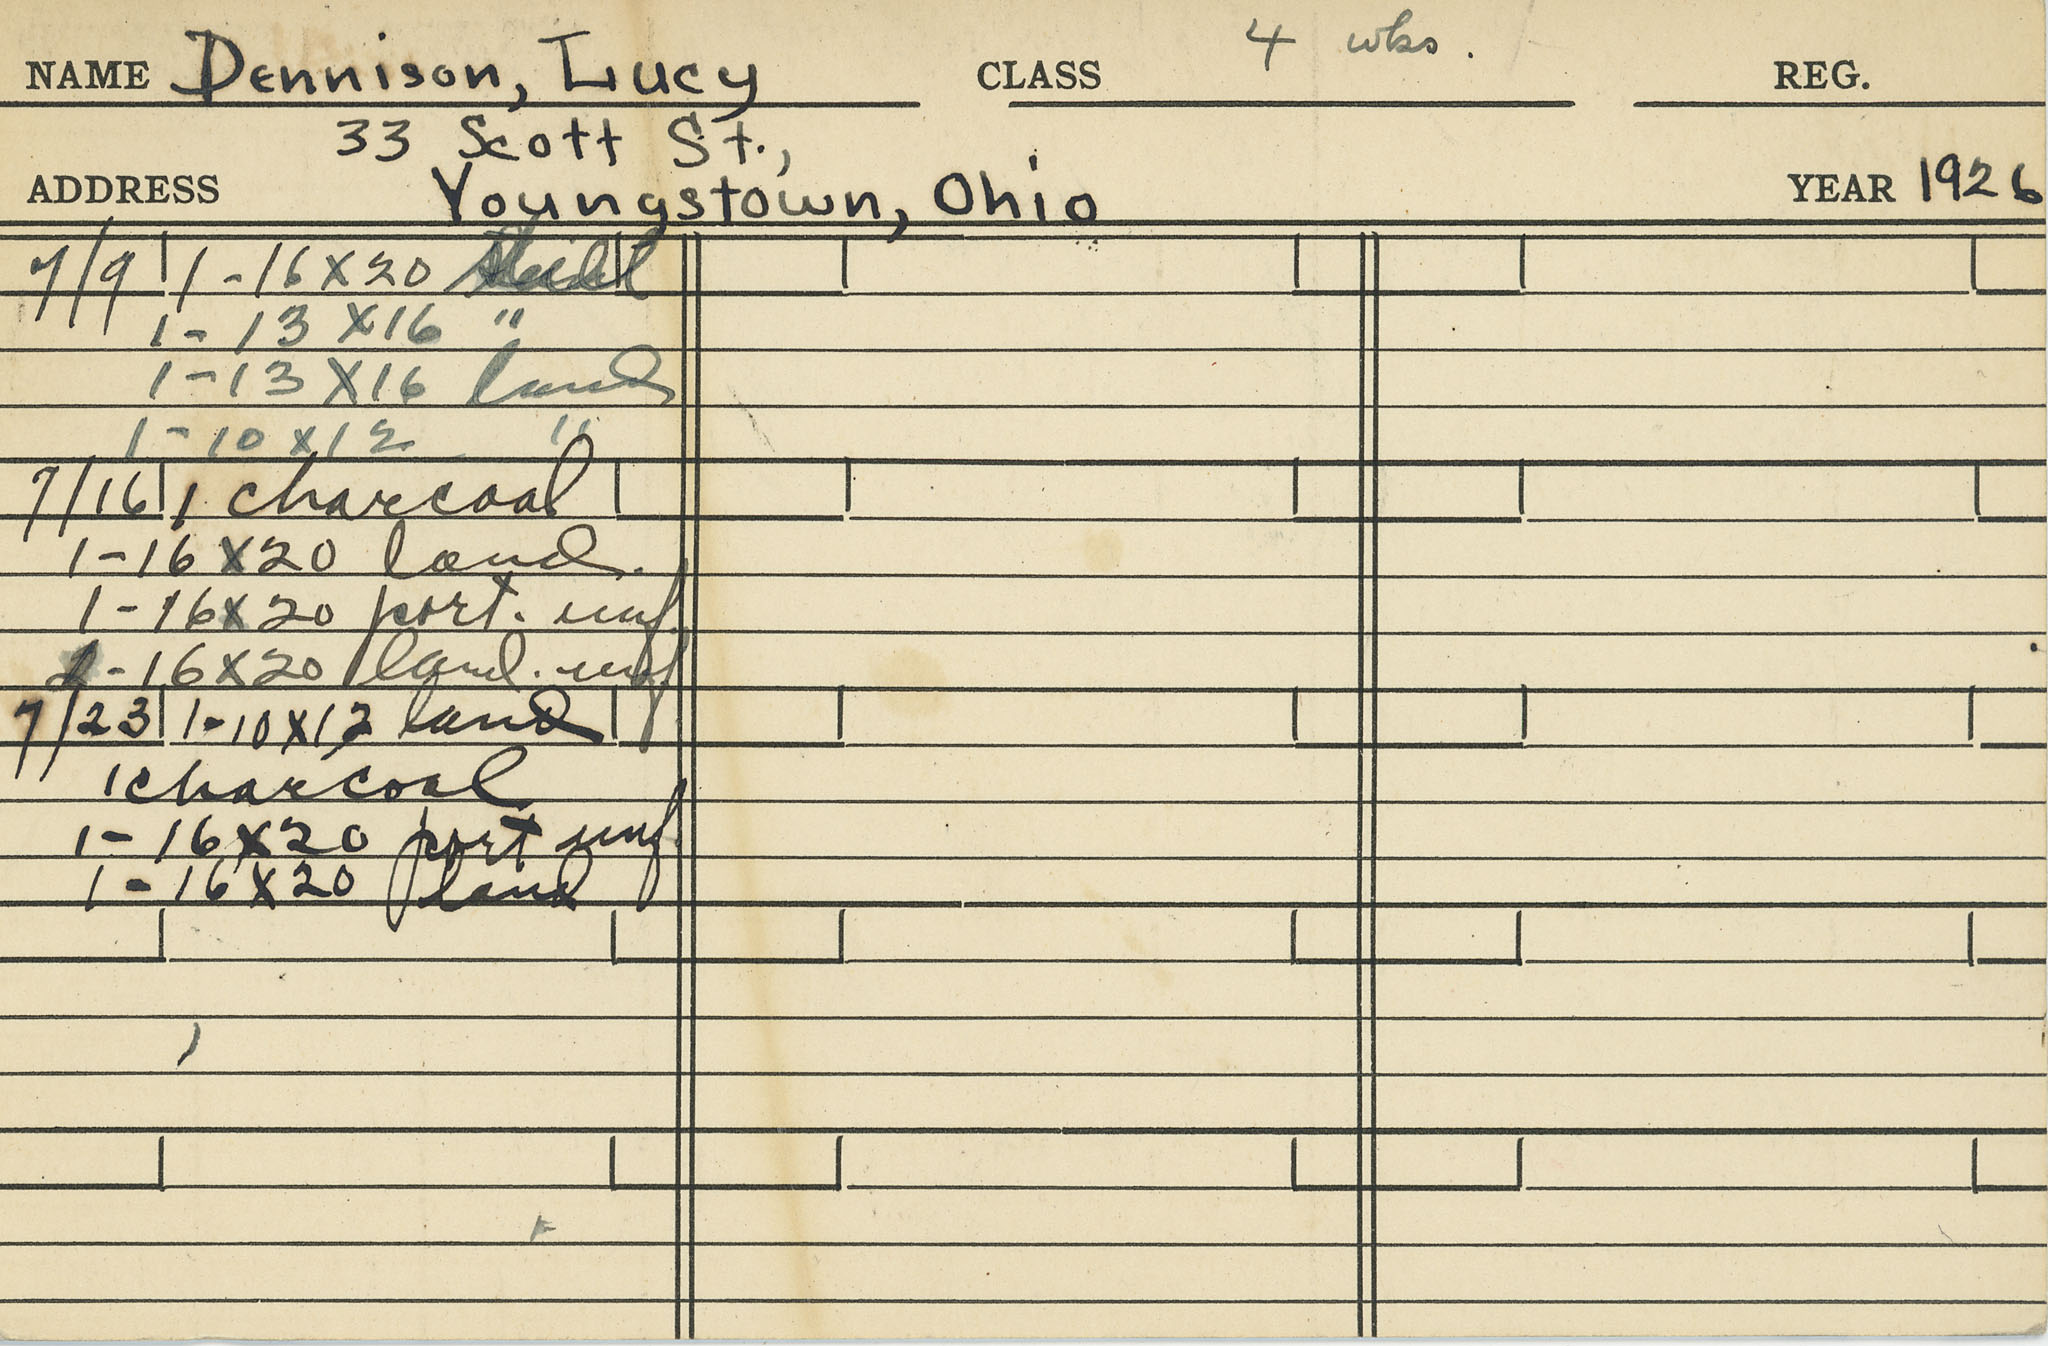 4 wks.
NAME Dennison, Lucy CLASS REG.
33 Scott St.,
ADDRESS Youngstown, Ohio YEAR 1926
7/9 1-16x20
1-13x16 "
1-13x16 land
1-10x12 "
7/16 1 charcoal
1-16x20 land.
1-16x20 port. unf.
-16x20 land. unf
7/23 1-10x12 land
1 charcoal
1-16x20 port unf.
1-16x20 land